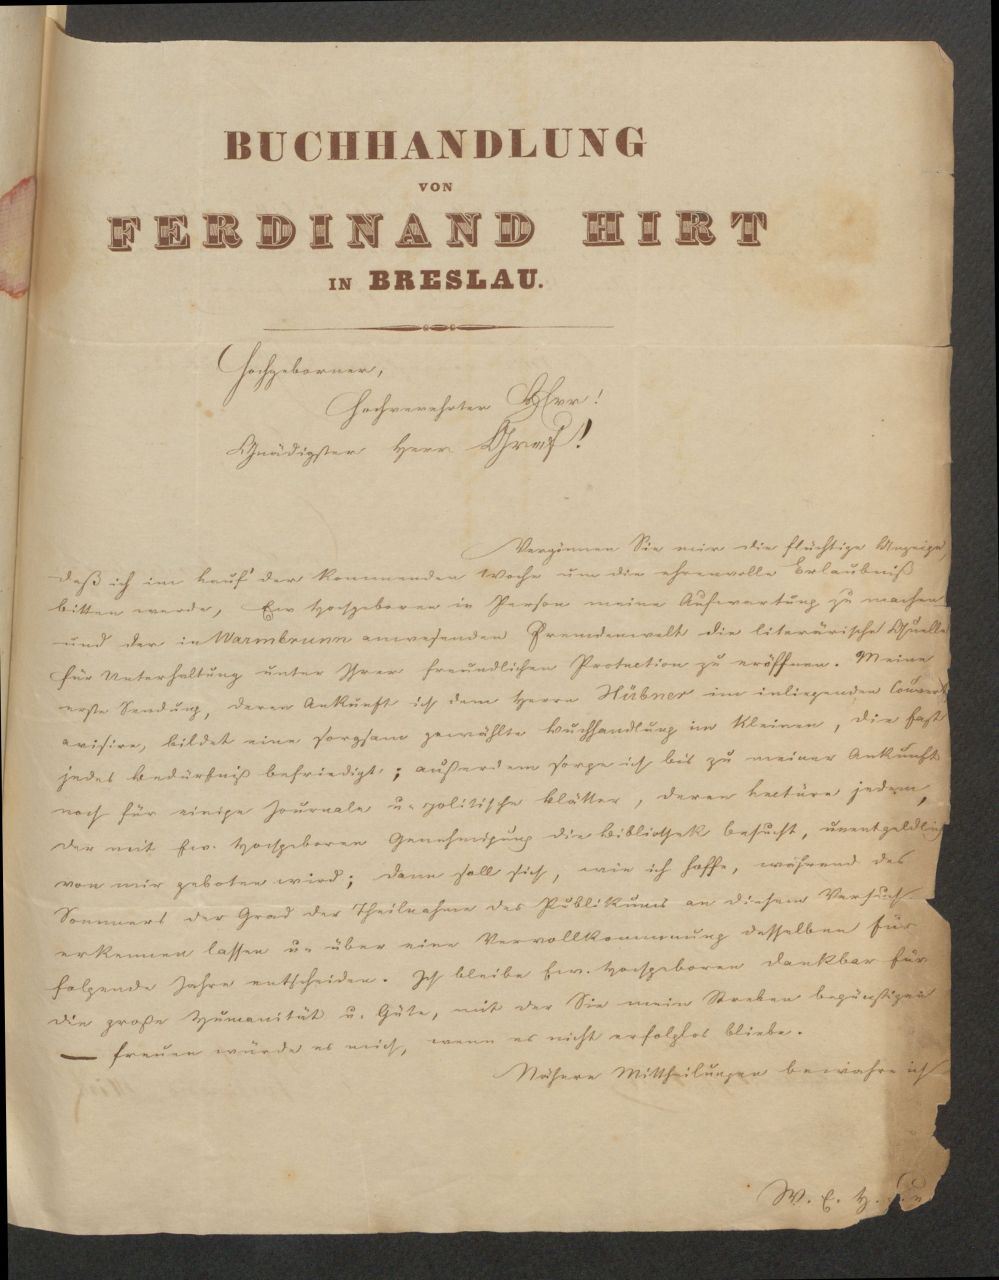 BUCHHANDLUNG
VON
FERDINAND HIRT
IN BRESLAU.
Hochgeborner,
Hochverehrter Herr!
Gnädigster Herr Graf!
Vergönnen Sie mir die flüchtige Anzeige,
daß ich im Lauf der kommenden Woche um die ehrenvolle Erlaubniß
bitten werde, Ew Hochgeboren in Person meine Aufwartung zu machen
und der in Warmbrunn anwesenden Fremdenwelt die literärische Quelle
für Unterhaltung unter Ihrer freundlichen Protection zu eröffnen. Meine
erste Sendung, deren Ankunft ich dem Herrn Hübner im inliegenden Couvert
avisire, bildet eine sorgsam gewählte Buchhandlung im Kleinen, die fast
jedes Bedürfniß befriedigt; außerdem sorge ich bis zu meiner Ankunft
noch für einige Journale u. politische Blätter, deren Lectüre jedem,
der mit Ew. Hochgeboren Genehmigung die Bibliothek besucht, unentgeldlich
von mir geboten wird; dann soll sich, wie ich hoffe, während des
Sommers der Grad der Theilnahme des Publikums an diesem Versuch
erkennen lassen u. über eine Vervollkommnung desselben für
folgende Jahre entscheiden. Ich bleibe Ew. Hochgeboren dankbar für
die große Humanität u. Güte, mit der Sie mein Streben begünstigen
— freuen würde es mich, wenn es nicht erfolglos bliebe.
Nähere Mittheilungen bewahre ich